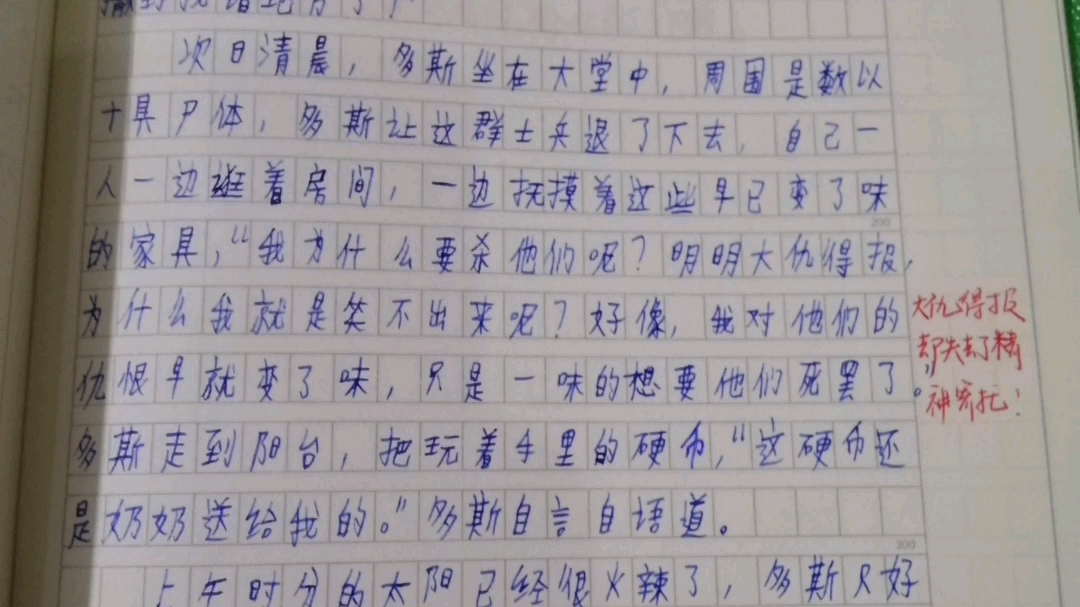 次日清晨，多斯坐在大堂中，周围是数以
十具尸体，多斯让这群士兵退了下去，自己一
人一边逛着房间，一边抚摸着这些早已变了味
200
的家具，“我为什么要杀他们呢？明明大仇得报，
为什么我就是笑不出来呢？好像，我对他们的
仇恨早就变了味，只是一味的想要他们死罢了。
多斯走到阳台，把玩着手里的硬币，“这硬币还
是奶奶送给我的。”多斯自言自语道。
300
上午时分的太阳已经很火辣了，多斯只好
大仇得报
却失去了精
神寄托！